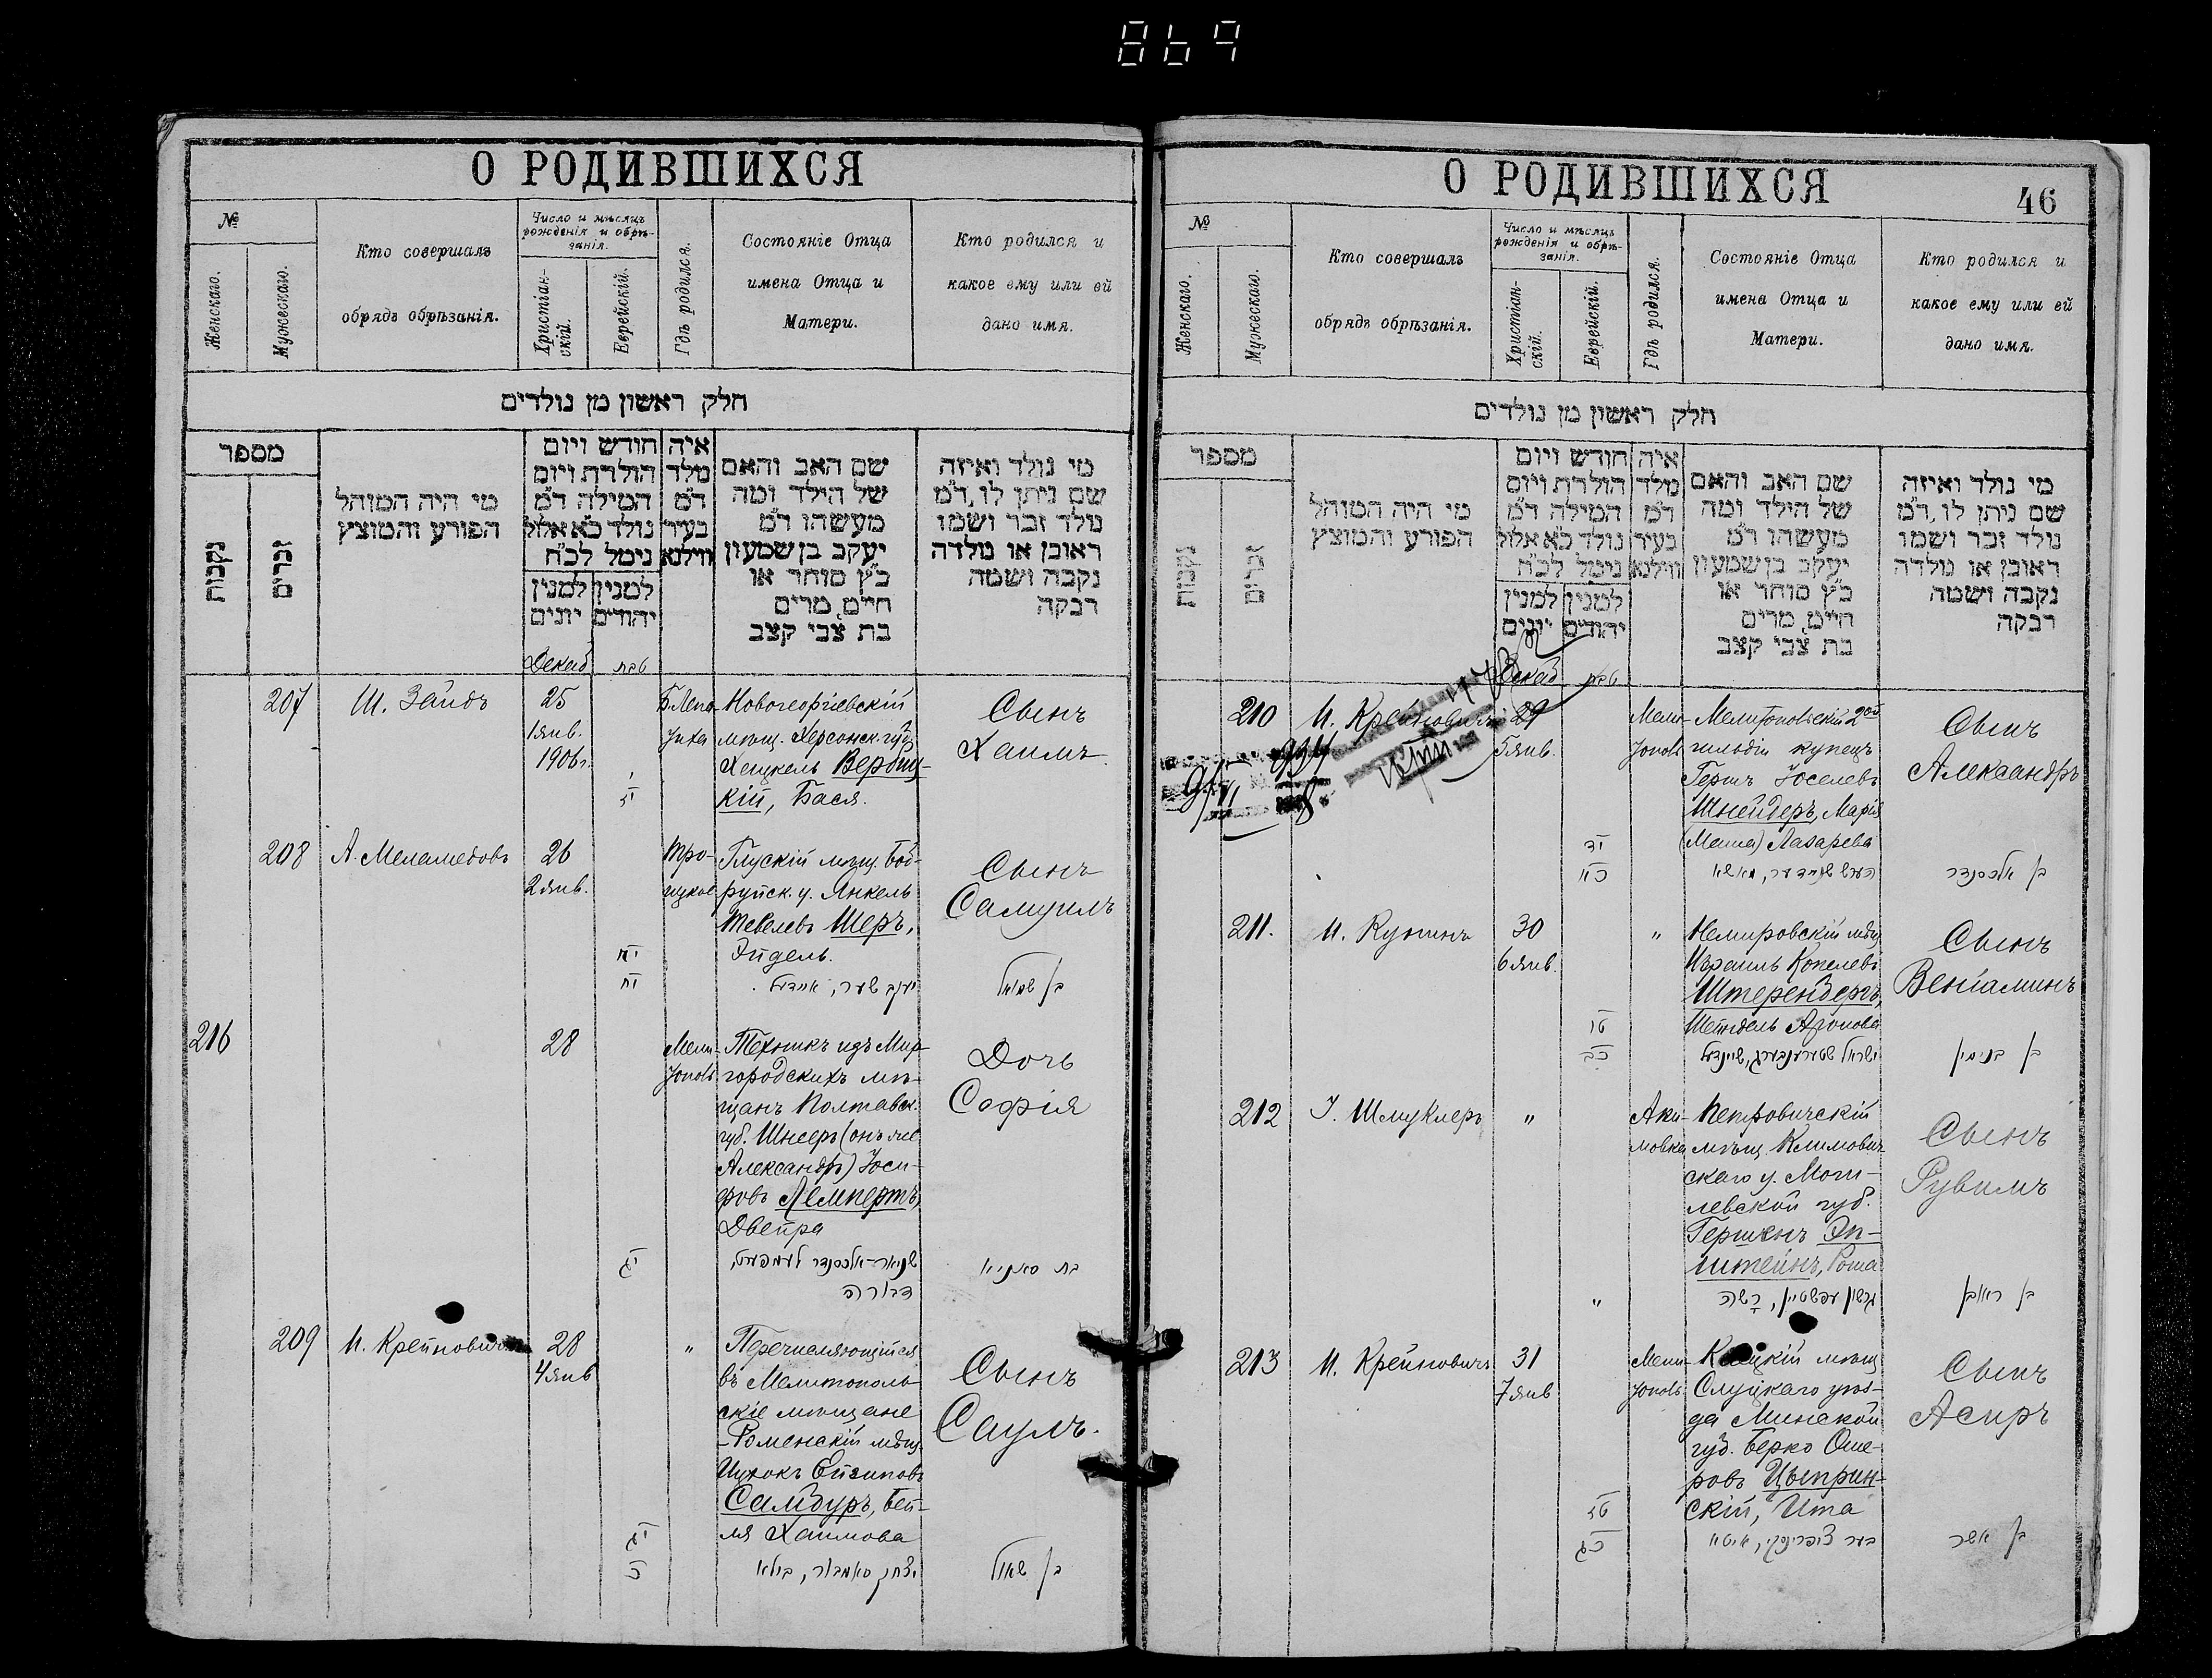 869
О РОДИВШИХСЯ
№
Женскаго.
Мужескаго.
Кто совершалъ
обрядъ обрѣзанія.
Число и мѣсяцъ
рожденія и обрѣ-
занія.
Христіан-
скій.
Еврейскій.
Гдѣ родился.
Состояніе Отца
имена Отца и
Матери.
Кто родился и
какое ему или ей
дано имя.
חלק ראשון מן נולדים
מספר
נקבות
זכרים
מי היה המוהל
הפורע והמוצץ
חודש ויום
הולדת ויום
המילה ד״מ
נולד כ״א אלול
נימל לכ״ח
למנין
יונים
למנין
יהודים
איה
מלד
ד״מ
בעיר
ווילנא
שם האב והאם
של הילד ומה
מעשהו ד״מ
יעקב בן שמעון
כ״ץ סוחר או
חי״ם, מרים
בת צבי קצב
מי נולד ואיזה
שם ניתן לו, ד״מ
נולד זכר ושמו
ראובן או נולדה
נקבה ושמה
רבקה
Декаб
טבת
207
Ш. Зайдъ
25
1 янв.
1906 г.
י
יז
Б. Лепа-
тиха
Новогеоргіевскій
мѣщ. Херсонск. губ.
Хацкель Вербиц-
кій, Бася.
Сынъ
Хаимъ
208
А. Меламедовъ
26
2 янв.
יא
יח
Тро-
ицкое
Глускій мѣщ. Боб-
руйск. у. Янкель
Тевелевъ Шеръ,
Эйдель.
יעקב שער, איידעל.
Сынъ
Самуилъ
בן שמואל
216
28
יג
Мели-
тополь
Техникъ изъ Мир-
городскихъ мѣ-
щанъ Полтавск.
губ. Шнееръ (онъ же
Александръ) Іоси-
фовъ Лемпертъ,
Двейра
שניאור-אלכסנדר לעמפערט,
דבורה
Дочь
Софія
בת סאפיא
209
И. Крейновичъ
28
4 янв
יג
כ
"
Перечисляющійся
въ Мелитополь-
скіе мѣщане
-Роменскій мѣщ.
Ицхокъ Ейзиковъ
Самбуръ, Бей-
ля Хаимова
יצחק סאמבור, בילא
Сынъ
Саулъ.
בן שאול
О РОДИВШИХСЯ
46
№
Женскаго.
Мужескаго.
Кто совершалъ
обрядъ обрѣзанія.
Число и мѣсяцъ
рожденія и обрѣ-
занія.
Христіан-
скій.
Еврейскій.
Гдѣ родился.
Состояніе Отца
имена Отца и
Матери.
Кто родился и
какое ему или ей
дано имя.
חלק ראשון מן נולדים
מספר
נקבות
זכרים
מי היה המוהל
הפורע והמוצץ
חודש ויום
הולדת ויום
המילה ד״מ
נולד כ״א אלול
נימל לכ״ח
למנין
יונים
למנין
יהודים
איה
מלד
ד״מ
בעיר
ווילנא
שם האב והאם
של הילד ומה
מעשהו ד״מ
יעקב בן שמעון
כ״ץ סוחר או
חי״ם, מרים
בת צבי קצב
מי נולד ואיזה
שם ניתן לו, ד״מ
נולד זכר ושמו
ראובן או נולדה
נקבה ושמה
רבקה
Декаб
טבת
210
И. Крейновичъ
29
5 янв.
יד
כא
Мели-
тополь
Мелитопольскій 2ой
гильдіи купецъ
Гершъ Іоселевъ
Шнейдеръ, Марія
(Маша) Лазарева
הערש שניידער, מאשא
Сынъ
Александръ
בן אלכסנדר
211.
И. Кунинъ
30
6 янв.
טו
כב
"
Немировскій мѣщ
Израиль Копелевъ
Штеренбергъ,
Шейндель Аронова
ישראל שטערענבערג, שיינדעל
Сынъ
Веніаминъ
בן בנימין
212
І. Шмуклеръ
"
"
Аки-
мовка
Петровичскій
мѣщ. Климович-
скаго у. Моги-
левской губ.
Гершонъ Эп-
штейнъ, Роша
גרשון עפשטיין, רָשה
Сынъ
Рувимъ
בן ראובן
213
И. Крейновичъ
31
7 янв
טז
כג
Мели-
тополь
Клецкій мѣщ
Слуцкаго уѣз-
да Минской
губ. Берко Оше-
ровъ Цыприн-
скій, Ита
בער ציפרינסקי, איטא
Сынъ
Асиръ
בן אשר